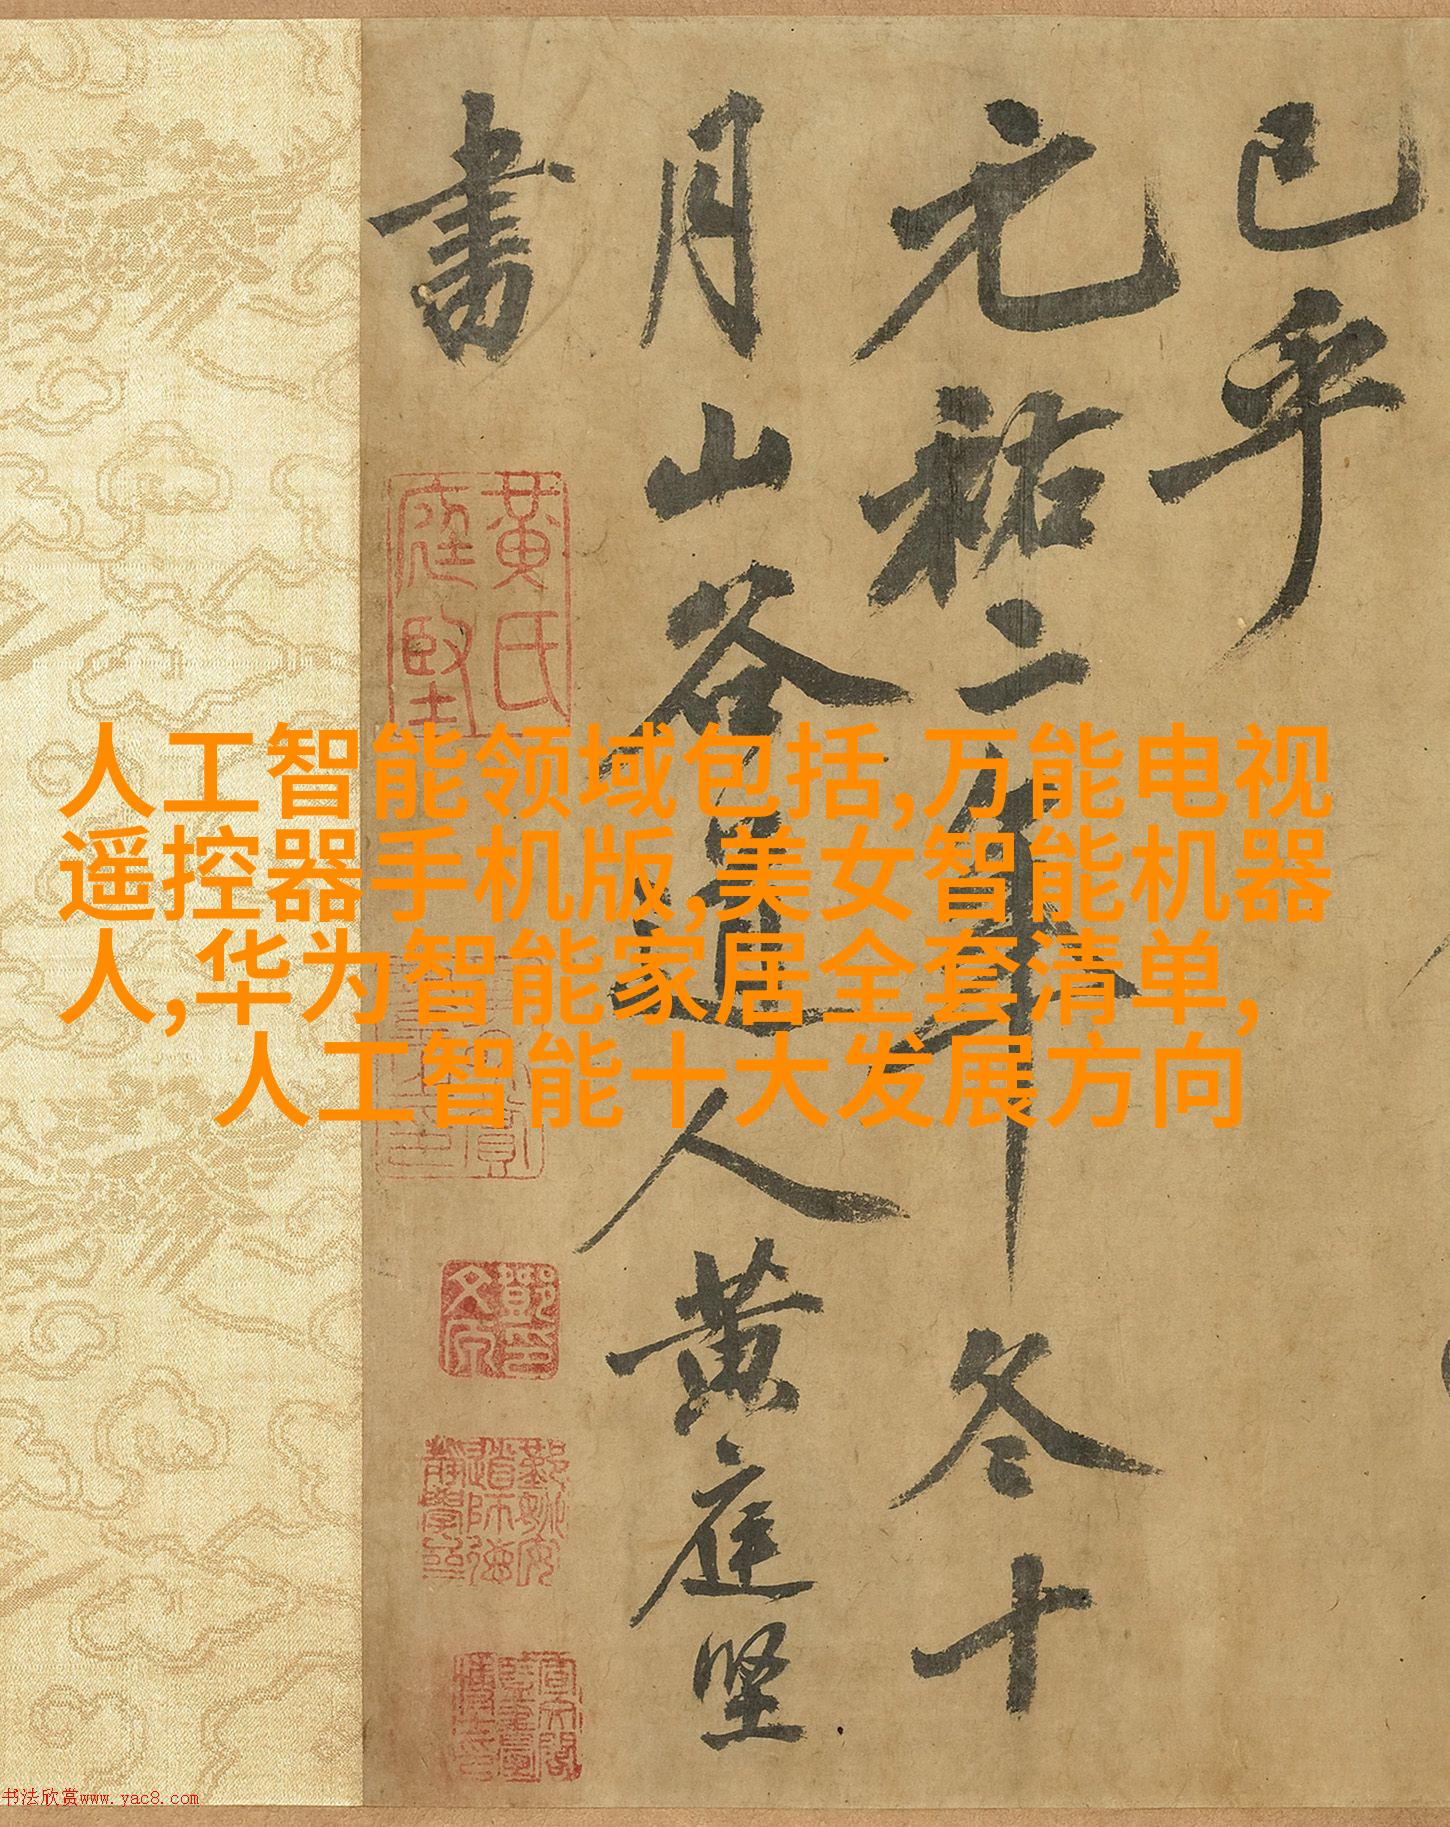 已乎
元祐二年冬十
月山谷道人黄庭坚
書
黄氏
庭堅
人工智能领域包括,万能电视
遥控器手机版,美女智能机器
人,华为智能家居全套清单,
人工智能十大发展方向
书法欣赏www.yac8.com